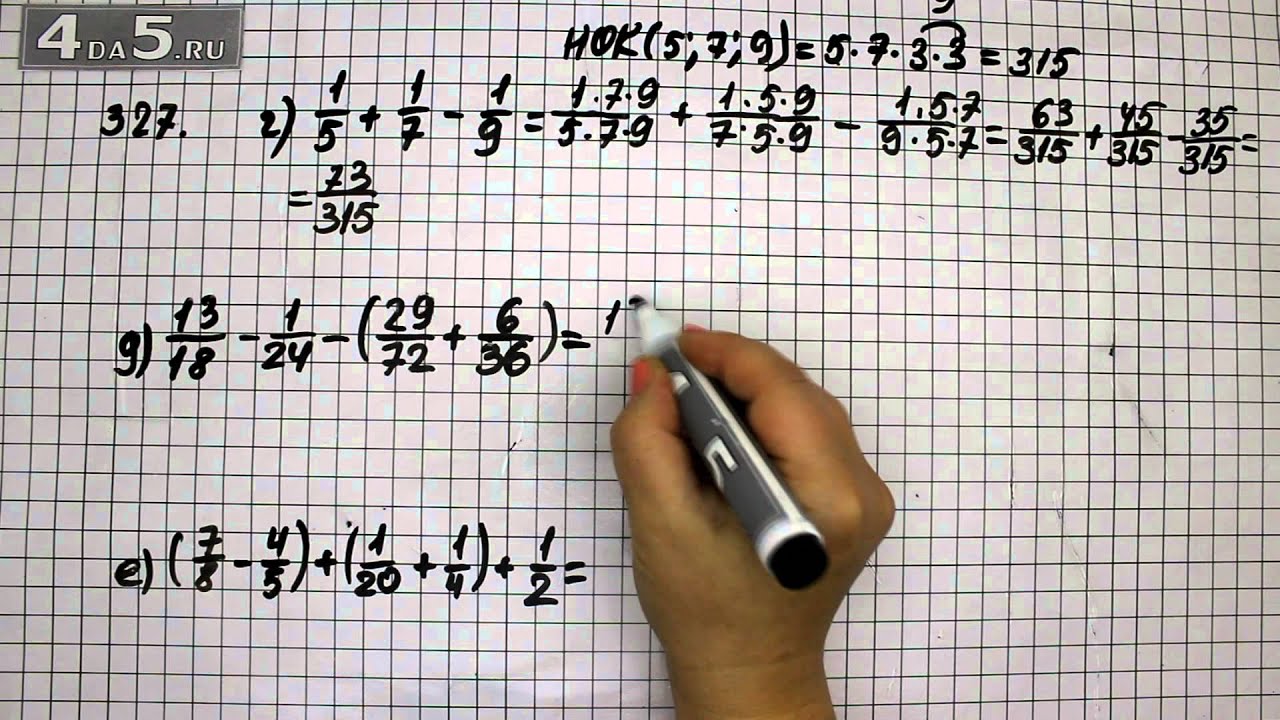 4DA5.RU
НОК(5;7;9)=5·7·3·3=315
327. г) 1/5 + 1/7 - 1/9 = 1·7·9/5·7·9 + 1·5·9/7·5·9 - 1·5·7/9·5·7 = 63/315 + 45/315 - 35/315 =
= 73/315
д) 13/18 - 1/24 - (29/72 + 6/36) = 1
е) (7/8 - 4/5) + (1/20 + 1/4) + 1/2 =